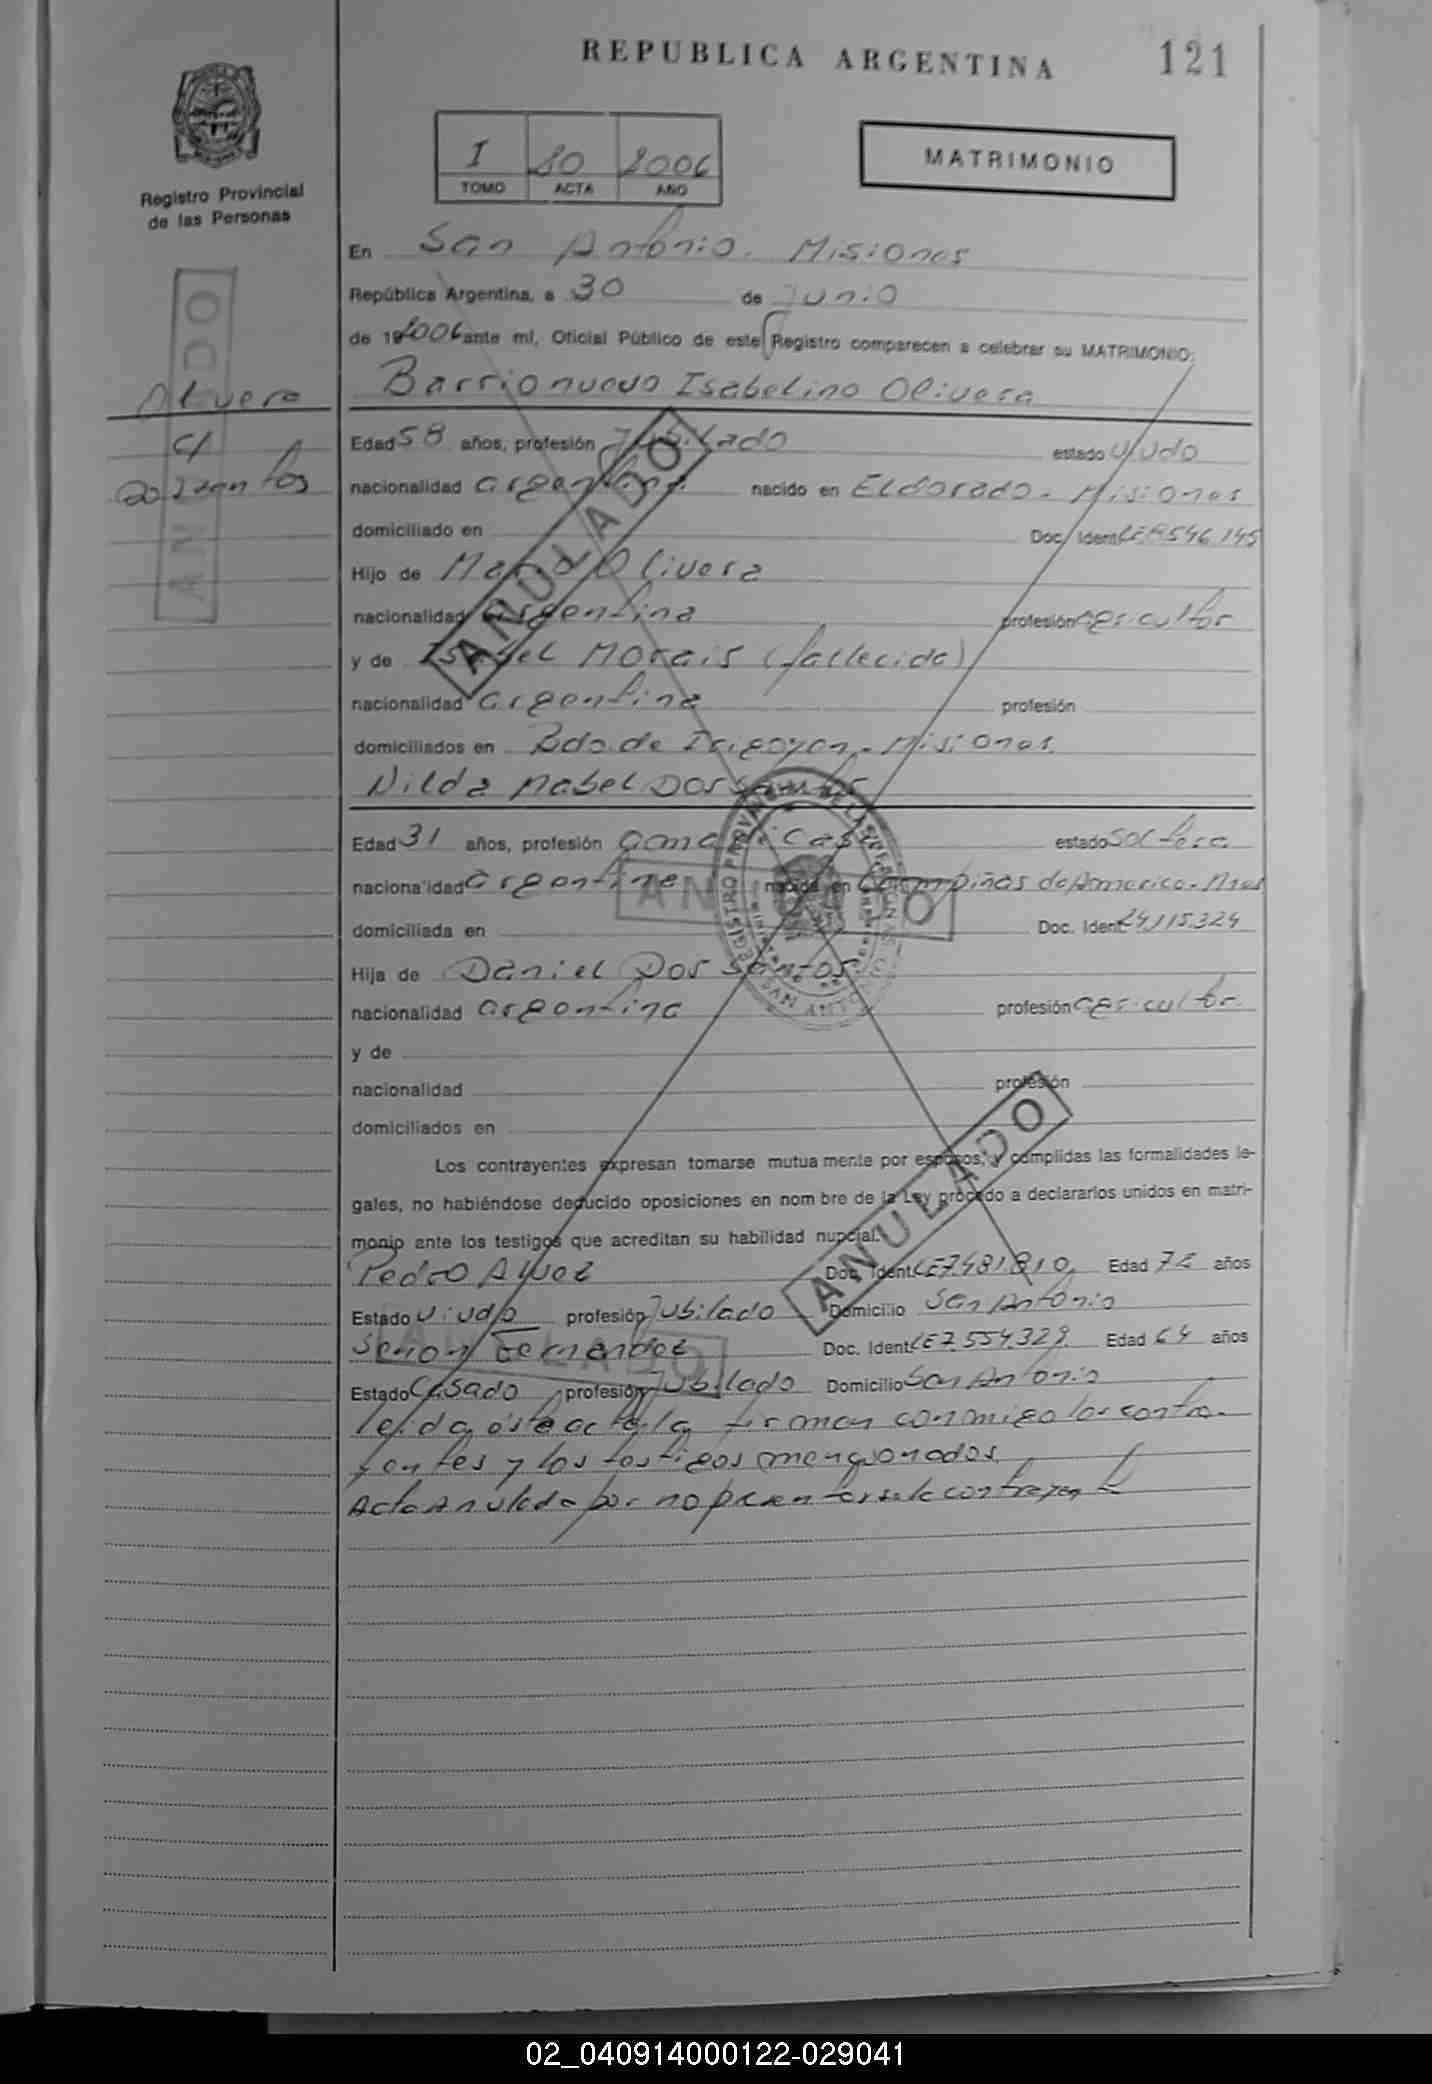 REPUBLICA ARGENTINA
121
Registro Provincial
de las Personas
I 80 2006
TOMO ACTA AÑO
MATRIMONIO
En San Antonio. Misiones
República Argentina, a 30 de Junio
de 19 2006 ante mi, Oficial Público de este Registro comparecen a celebrar su MATRIMONIO:
Barrionuevo Isabelino Olivera
Olivera
c/
Dos Santos
ANULADO
Edad 58 años, profesión Jubilado estado viudo
nacionalidad argentina. nacido en Eldorado - Misiones
domiciliado en Doc. Ident. LE 8546.145
Hijo de Mario Olivera
nacionalidad argentina profesión agricultor
y de Isabel Morais (fallecida)
nacionalidad argentina profesión
domiciliados en Bdo. de Irigoyen - Misiones
ANULADO
Nilda Mabel Dos Santos
Edad 31 años, profesión ama de casa estado soltera
nacionalidad argentina nacida en Campiñas de America - Mnes
ANULADO
REGISTRO PROVINCIAL DE LAS PERSONAS
domiciliada en Doc. Ident. 24.115.324
Hija de Daniel Dos Santos.
nacionalidad argentina profesión agricultor
y de
nacionalidad profesión
domiciliados en
Los contrayentes expresan tomarse mutua mente por esposos, y cumplidas las formalidades le-
gales, no habiéndose deducido oposiciones en nom bre de la Ley procedo a declararlos unidos en matri-
monio ante los testigos que acreditan su habilidad nupcial.
ANULADO
Pedro Doc. Ident. LE 7.481.810. Edad 72 años
Estado viudo profesión Jubilado Domicilio San Antonio
Fernandez Doc. Ident. LE 7.554.329. Edad 64 años
Estado Casado profesión Jubilado Domicilio San Antonio
ANULADO
leida ésta acta, la firman conmigo los contra-
yentes y los testigos mencionados.
Acta Anulada por no presentarse la contrayente
02_040914000122-029041